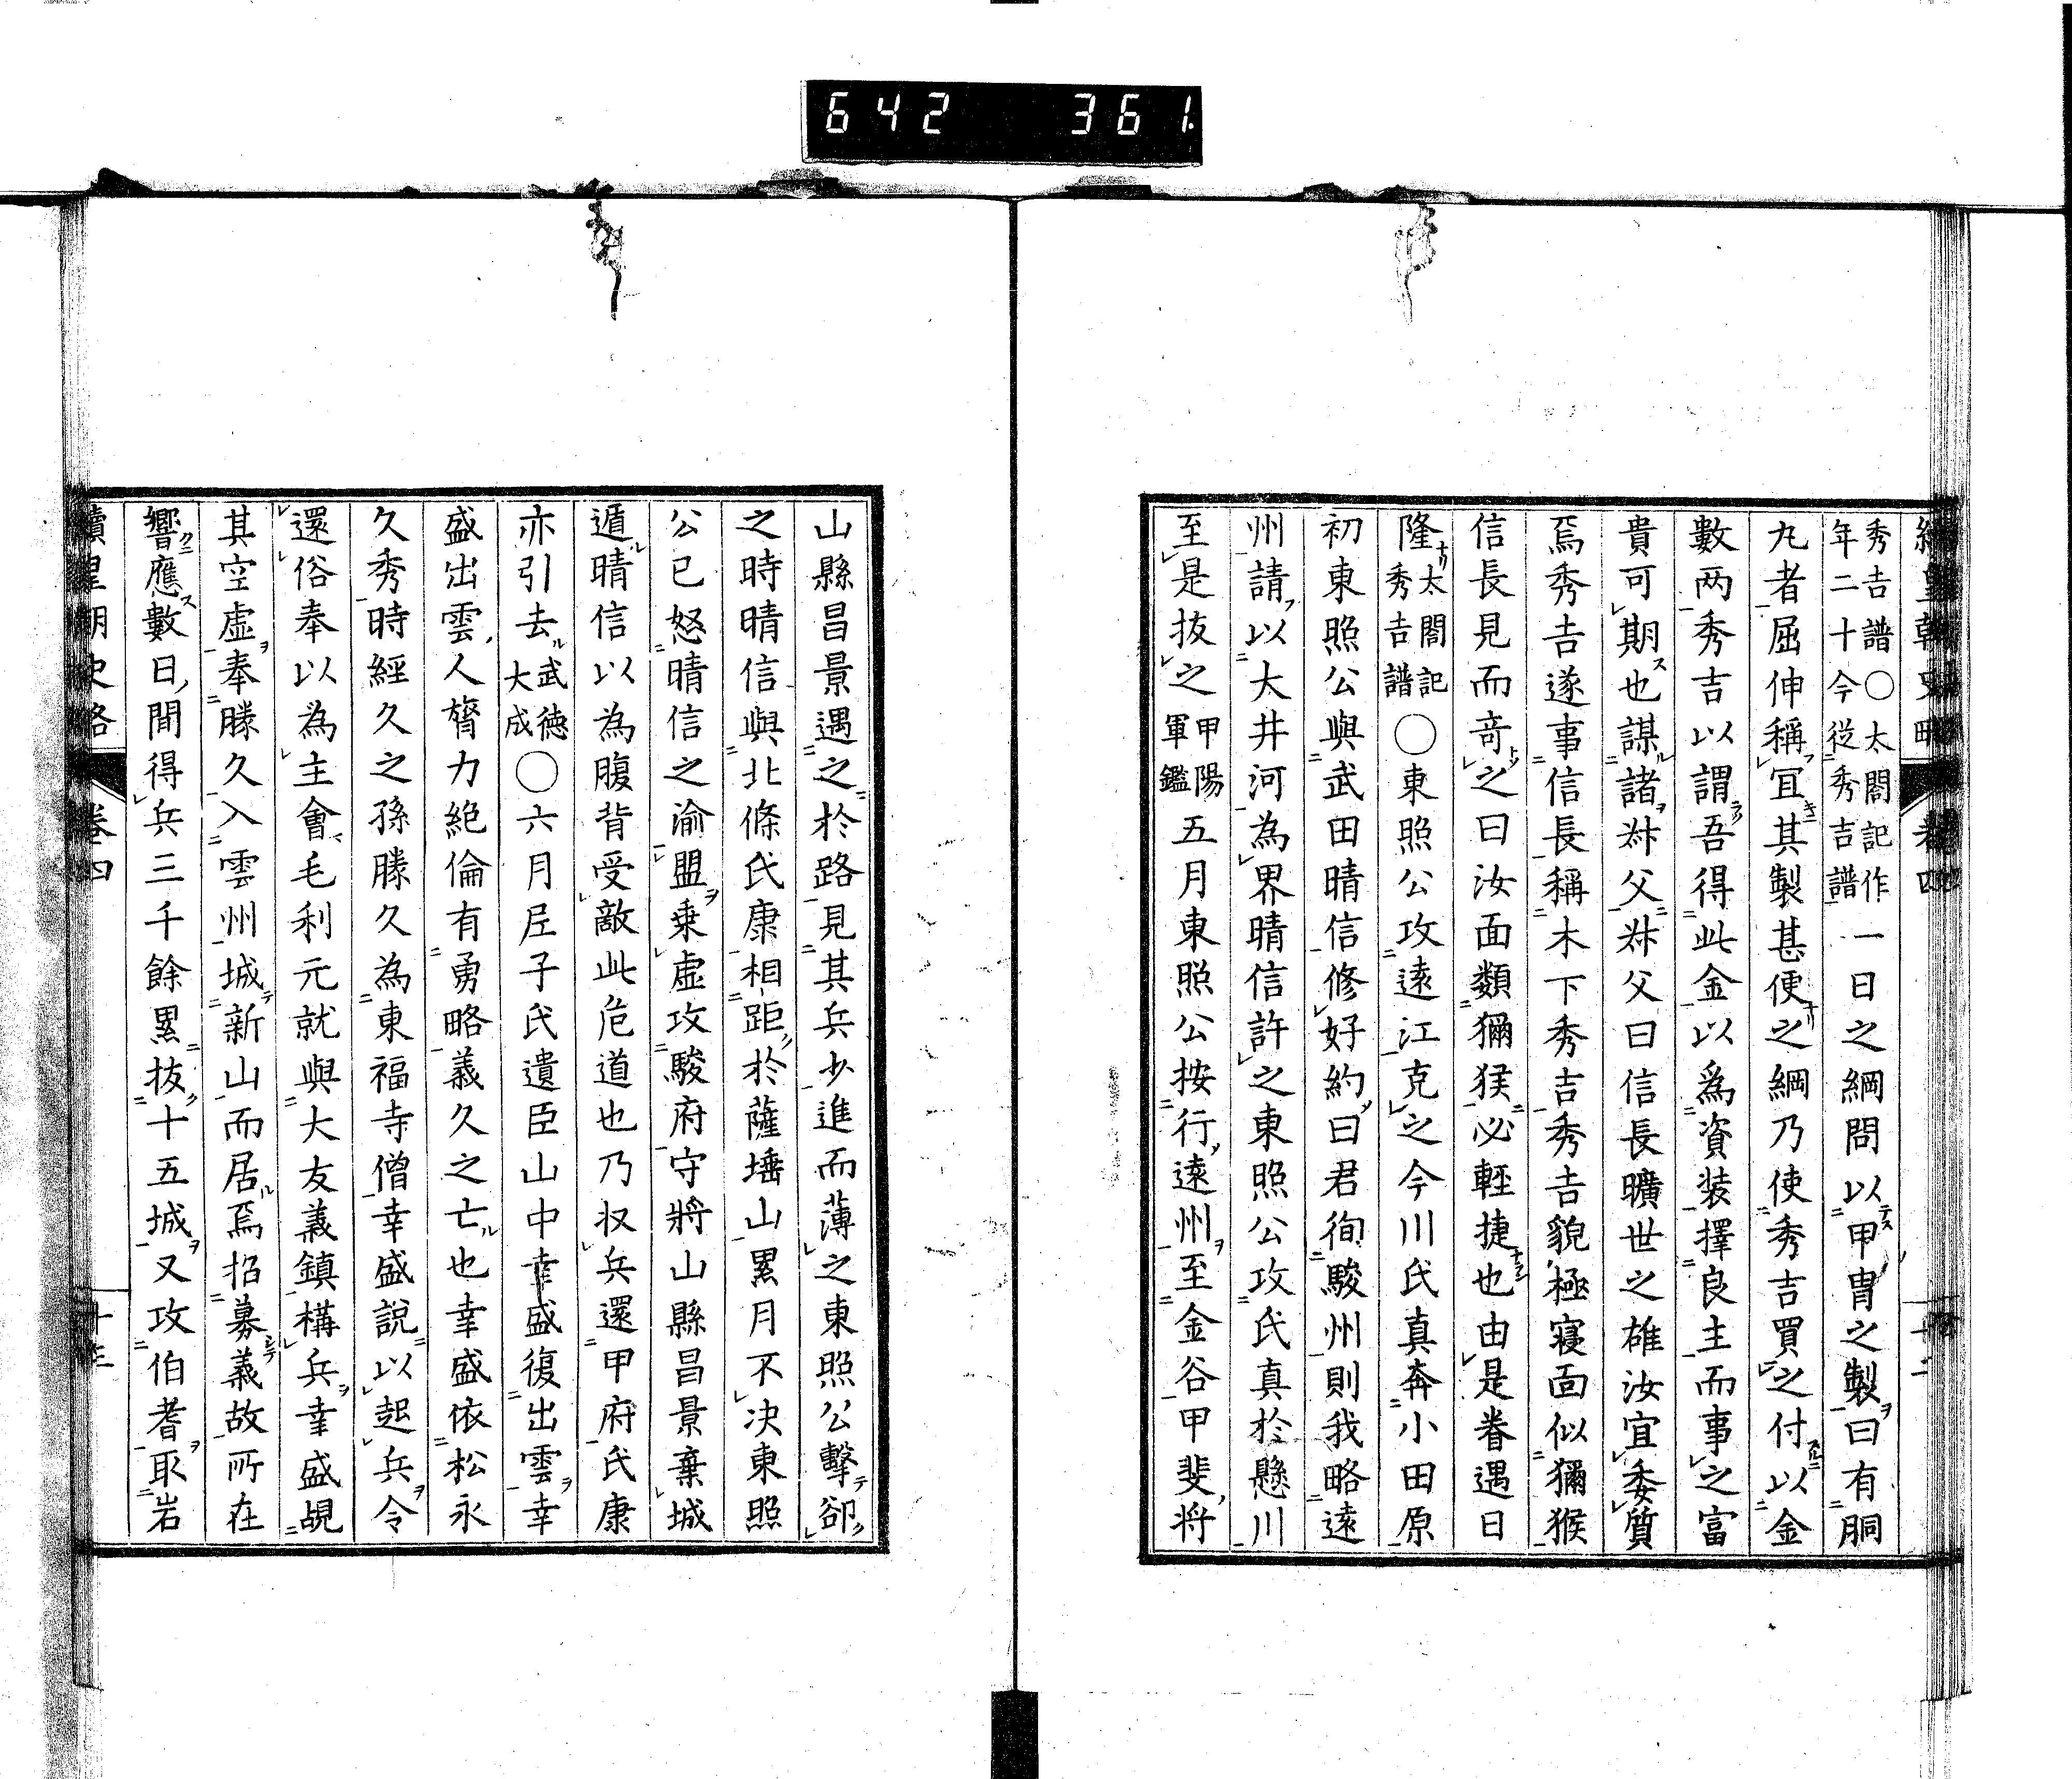 642 361
續皇朝史略 卷四 十二
秀吉譜○太閤記作年二十今從秀吉譜一日之綱問以甲冑之製曰有胴
丸者屈伸稱宜其製甚便之綱乃使秀吉買之付以金
數两秀吉以謂吾得此金以爲資装擇良主而事之富
貴可期也謀諸叔父叔父曰信長曠世之雄汝宜委質
焉秀吉遂事信長稱木下秀吉秀吉貌極寢面似獼猴
信長見而竒之曰汝面類獼猴必輕捷也由是眷遇日
隆太閤記秀吉譜○東照公攻遠江克之今川氏真奔小田原
初東照公與武田晴信修好約曰君徇駿州則我略遠
州請以大井河為界晴信許之東照公攻氏真於懸川
至是拔之甲陽軍鑑五月東照公按行遠州至金谷甲斐將
山縣昌景遇之於路見其兵少進而薄之東照公擊卻
之時晴信與北條氏康相距於薩埵山累月不决東照
公已怒晴信之渝盟乗虛攻駿府守將山縣昌景棄城
遁晴信以為腹背受敵此危道也乃収兵還甲府氏康
亦引去武德大成○六月尼子氏遺臣山中幸盛復出雲幸
盛出雲人膂力絶倫有勇略義久之亡也幸盛依松永
久秀時經久之孫勝久為東福寺僧幸盛說以起兵令
還俗奉以為主會毛利元就與大友義鎮構兵幸盛覘
其空虛奉勝久入雲州城新山而居焉招募義故所在
響應數日間得兵三千餘累拔十五城又攻伯耆取岩
續皇朝史略 卷四 十三